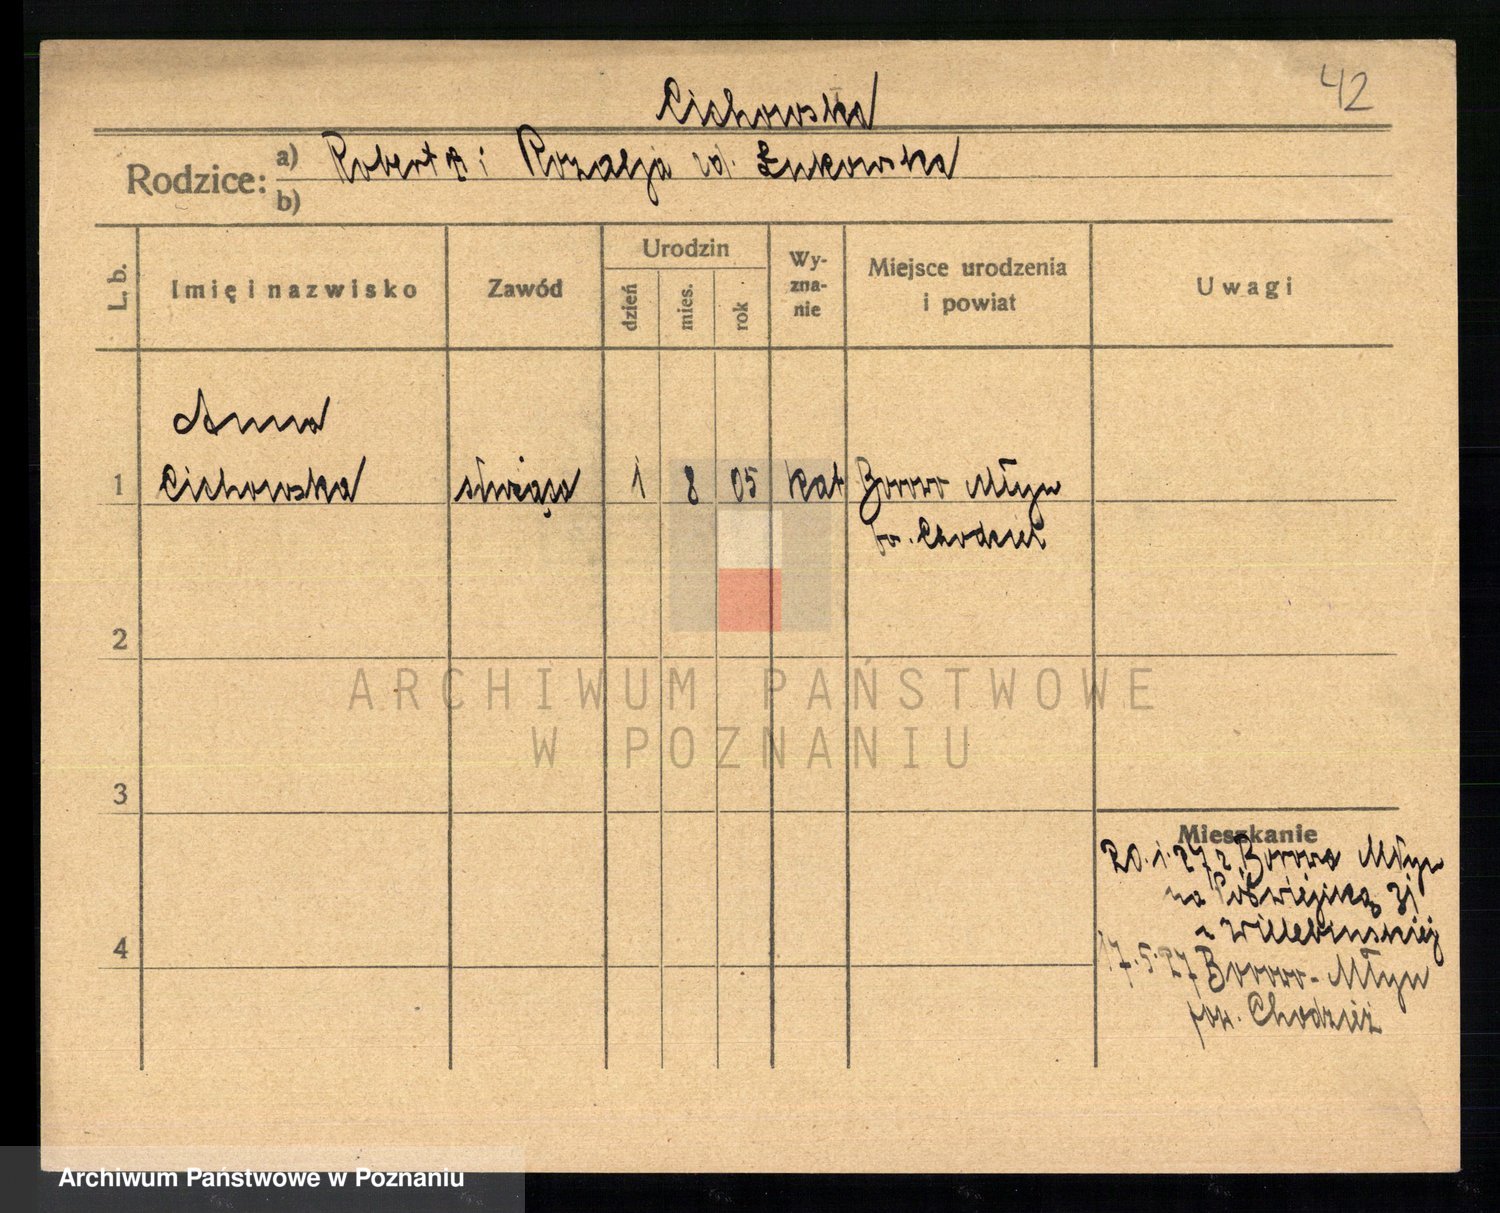 42
Cichowska
Rodzice: a) Robert i Rozalja zd. Łukowska
b)
L. b. Imię i nazwisko Zawód Urodzin dzień mies. rok Wyznanie Miejsce urodzenia i powiat Uwagi
Anna
1 Cichowska służąca 1 8 05 kat Borowo Młyn
pow. Chodzież
2
ARCHIWUM PAŃSTWOWE
W POZNANIU
3
Mieszkanie
20.1.27 z Borowo Młyn
na
4
17.5.27 Borowo-Młyn
pow. Chodzież
Archiwum Państwowe w Poznaniu